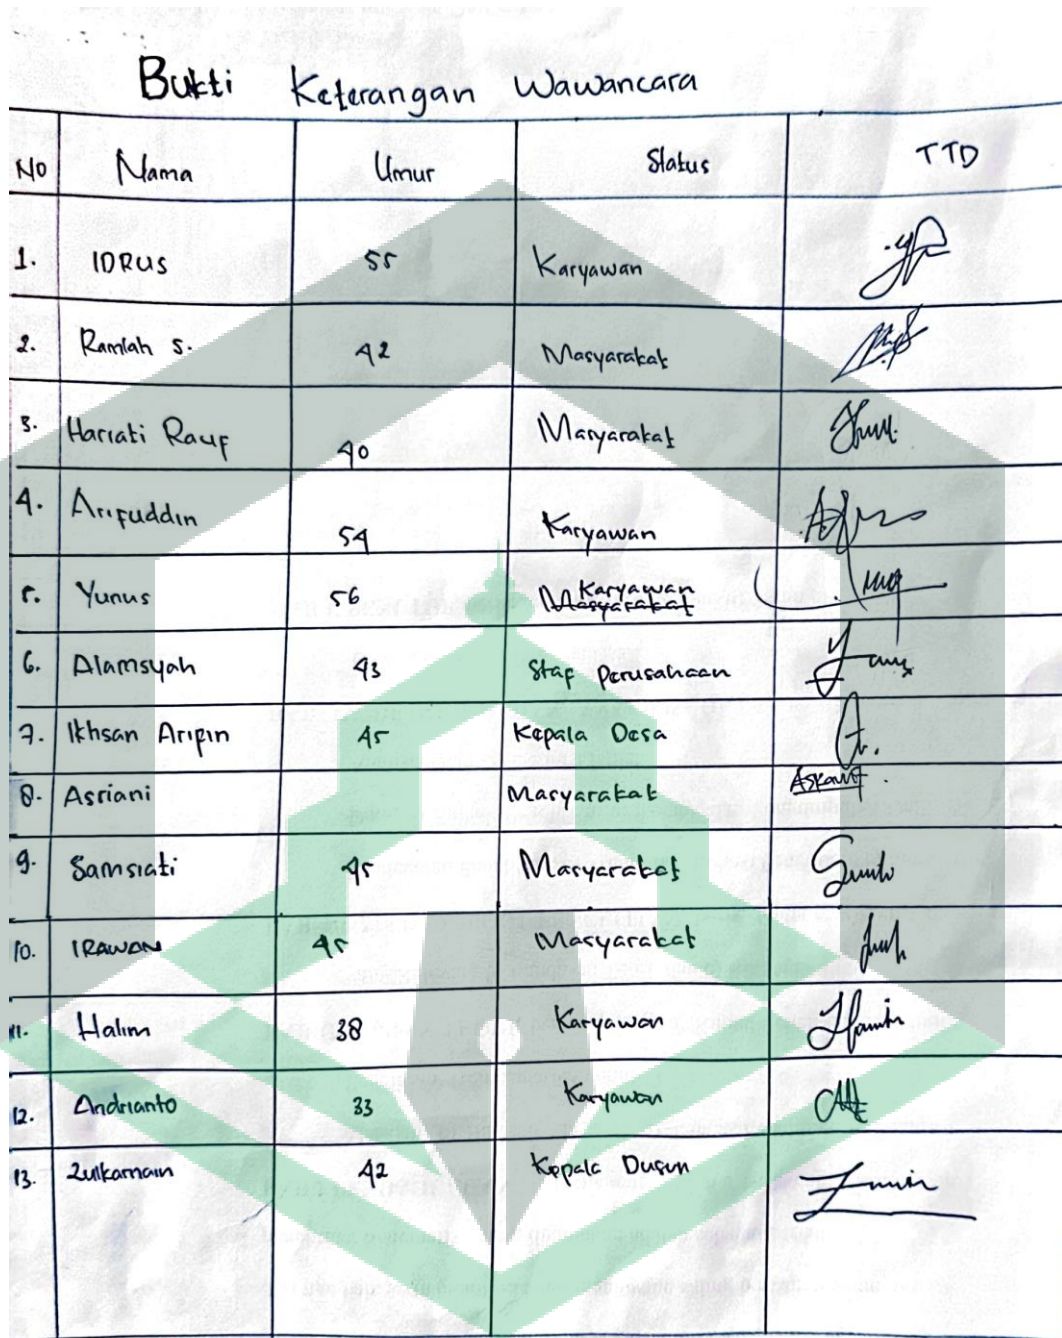 Bukti Keterangan Wawancara
No Nama Umur Status TTD
1. IDRUS 55 Karyawan
2. Ramlah S. 42 Masyarakat
3. Hariati Rauf 40 Masyarakat
4. Arifuddin 54 Karyawan
5. Yunus 56 Karyawan Masyarakat
6. Alamsyah 43 Staf perusahaan
7. Ikhsan Aripin 45 Kepala Desa
8. Asriani Masyarakat
9. Samsiati 45 Masyarakat
10. IRAWAN 45 Masyarakat
11. Halim 38 Karyawan
12. Andrianto 33 Karyawan
13. Zulkarnain 42 Kepala Dusun